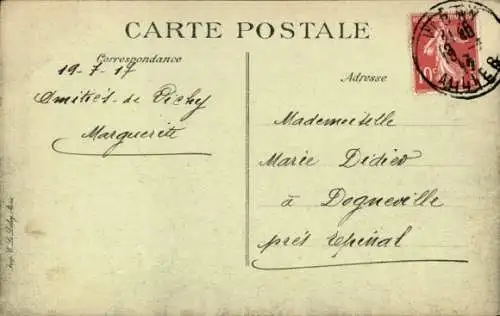 CARTE POSTALE
Correspondance
19-7-17
Amitiés de Vichy
Marguerite
Adresse
Mademoiselle
Marie Didier
à Dogneville
près Epinal
VICHY
ALLIER